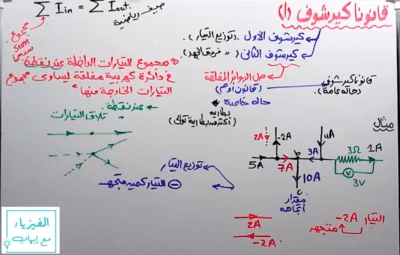 قانونا كيرشوف (1)
كيرشوف الأول (توزيع التيار)
كيرشوف الثاني (فروق الجهد)
حل الدوائر المغلقة
(قانون أوم)
حالة خاصة
بطارية
قانونا كيرشوف
(حالة عامة)
∑ I in = ∑ I out
مجموع
مجموع التيارات الداخلة عند نقطة
في دائرة كهربية مغلقة يساوى مجموع
التيارات الخارجة منها
عند نقطة
تلاقى التيارات
توزيع التيار
التيار كمية متجهة
مثال
2A
4A
5A
7A
3A
10A
3Ω
1A
V
3V
مقدار
اتجاه
2A
-2A
التيار -2A
متجهة
الفيزياء
مع إيهاب